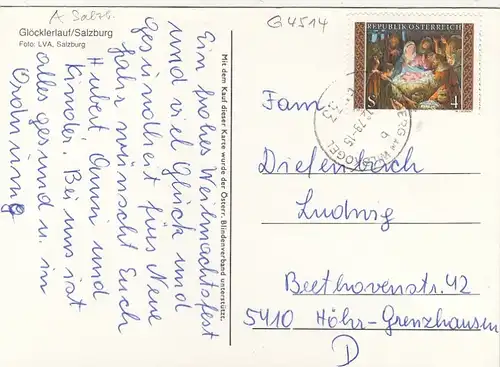 A Salzb.
G 4514
Glöcklerlauf/Salzburg
Foto: LVA, Salzburg
Ein frohes Weihnachtsfest
und viel Glück und
Gesundheit fürs Neue
Jahr wünscht Euch
Hubert Omi und
Kinder. Bei uns ist
alles gesund u. in
Ordnung
Mit dem Kauf dieser Karte wurde der Österr. Blindenverband unterstützt.
REPUBLIK ÖSTERREICH
S 4
Fam.
Diefenbach
Ludwig
Beethovenstr. 42
5410 Höhr-Grenzhausen
D